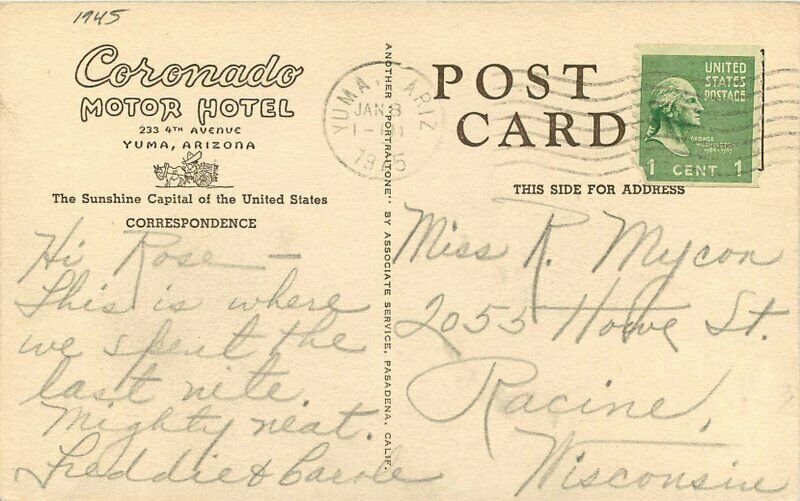 1945
Coronado
MOTOR HOTEL
233 4TH AVENUE
YUMA, ARIZONA
The Sunshine Capital of the United States
CORRESPONDENCE
Hi Rose —
This is where
we spent the
last nite.
Mighty neat.
Freddie & Carole
ANOTHER "PORTRAITONE" BY ASSOCIATE SERVICE, PASADENA, CALIF.
YUMA, ARIZ
JAN 8
1945
POST
CARD
UNITED
STATES
POSTAGE
GEORGE
WASHINGTON
1789-1797
1 CENT 1
THIS SIDE FOR ADDRESS
Miss R. Mycon
2055 Howe St.
Racine,
Wisconsin